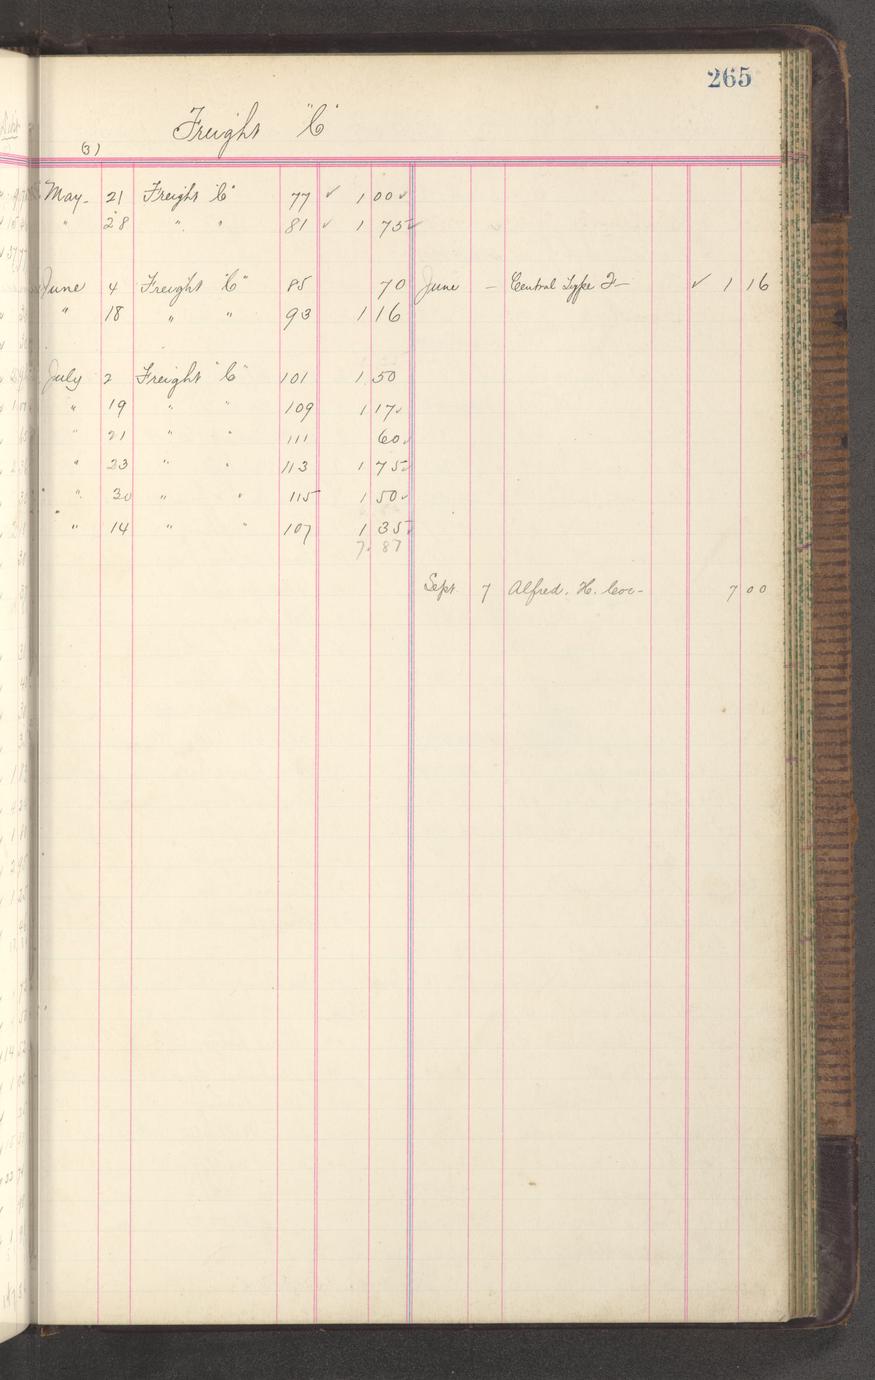 265
Freight "C"
(3)
May 21 Freight "C" 77 ✓ 1 00 ✓
" 28 " " 81 ✓ 1 75 ✓
June 4 Freight "C" 85 70 June – Central Type ✓ 1 16
" 18 " " 93 1 16
July 2 Freight "C" 101 1 50
" 19 " " 109 1 17 ✓
" 21 " " 111 60 ✓
" 23 " " 113 1 75 ✓
" 30 " " 115 1 50 ✓
" 14 " " 107 1 35 ✓
7. 87
Sept 7 Alfred. H. Coe - 7 00